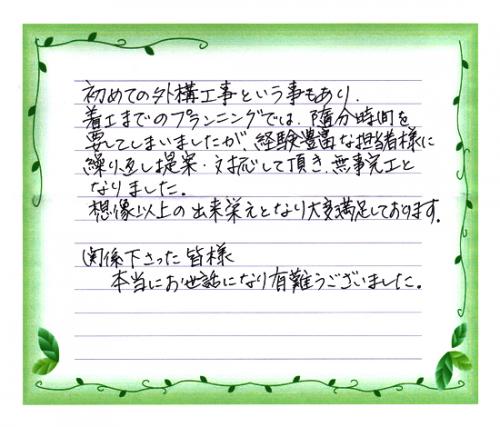 初めての外構工事という事もあり、
着工までのプランニングでは、随分時間を
要してしまいましたが、経験豊富な担当者様に
繰り返し提案・対応して頂き、無事完工と
なりました。
想像以上の出来栄えとなり大変満足しております。
関係下さった皆様
本当にお世話になり有難うございました。